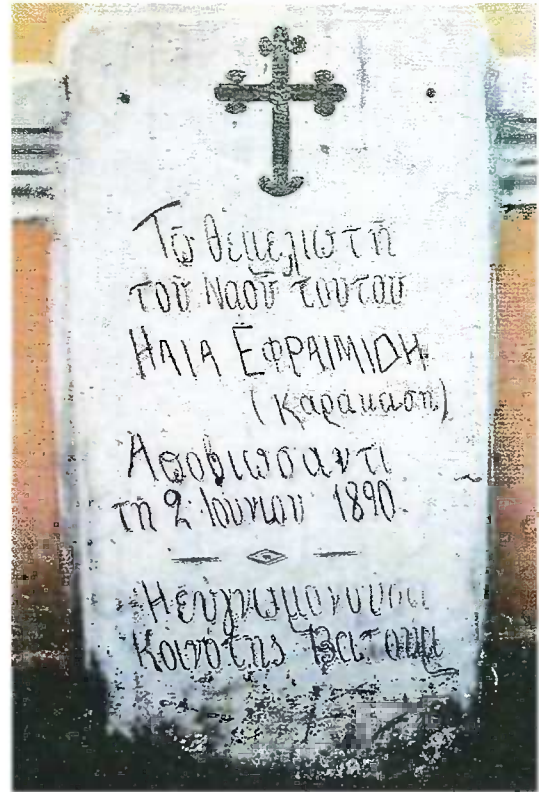 Τῷ θεμελιωτῇ
τοῦ Ναοῦ τούτου
ΗΛΙΑ ΕΦΡΑΙΜΙΔΗ
(Καρακάση)
Ἀποβιώσαντι
τῇ 2 Ἰουνίου 1890.
Ἡ εὐγνωμονοῦσα
Κοινότης Βατούμ